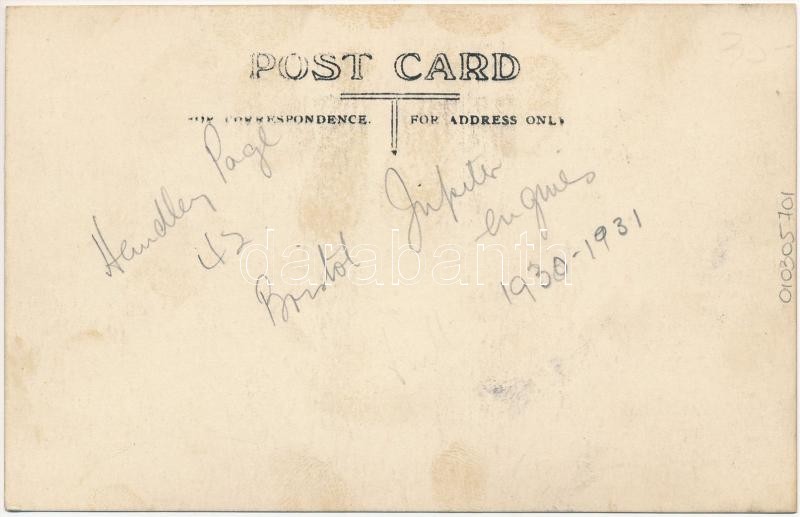 POST CARD
FOR CORRESPONDENCE. FOR ADDRESS ONLY
Handley Page
42
Bristol Jupiter
engines
1930-1931
darabanth
010305701